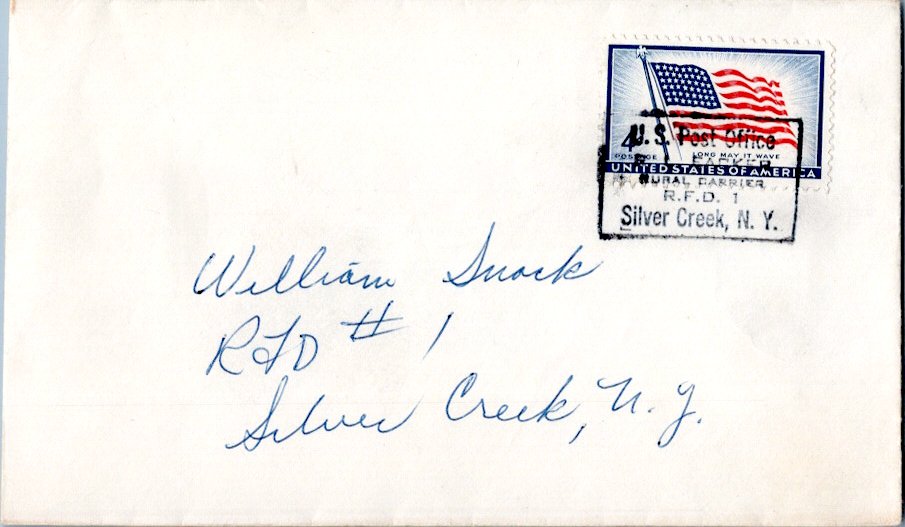 U. S. Post Office
4¢
POSTAGE
LONG MAY IT WAVE
UNITED STATES OF AMERICA
RURAL CARRIER
R.F.D. 1
Silver Creek, N. Y.
William Snock
RFD # 1
Silver Creek, N. Y.